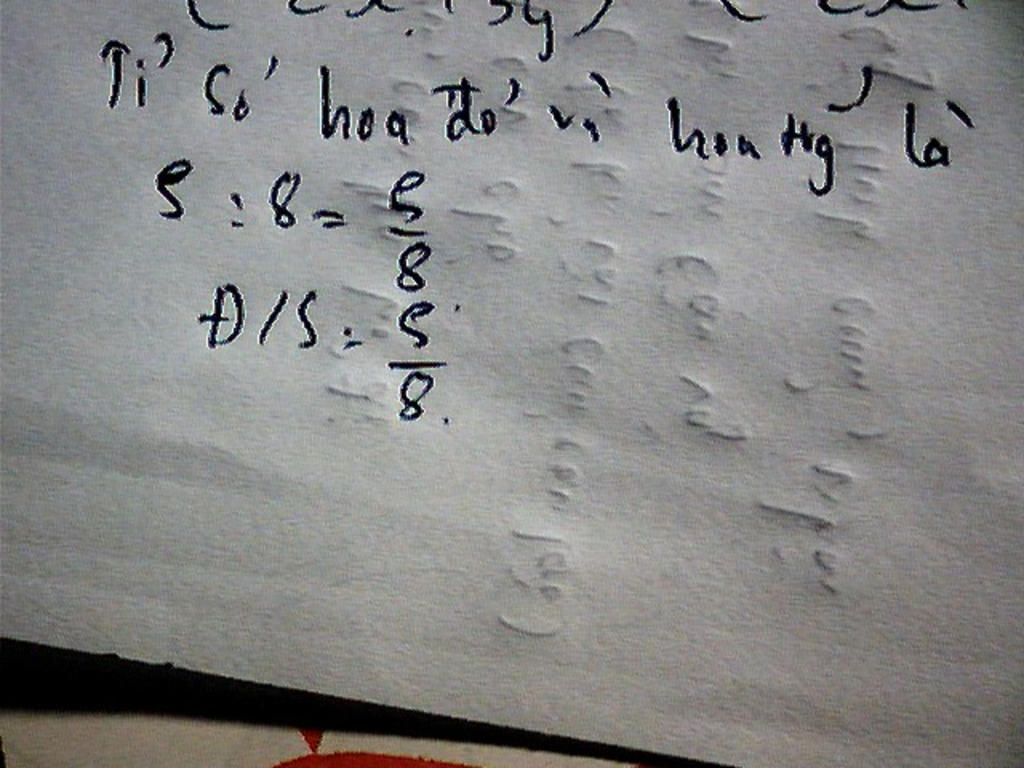 Tỉ số hoa đỏ và hoa Hg là
5 : 8 = 5/8
Đ/S : 5/8.